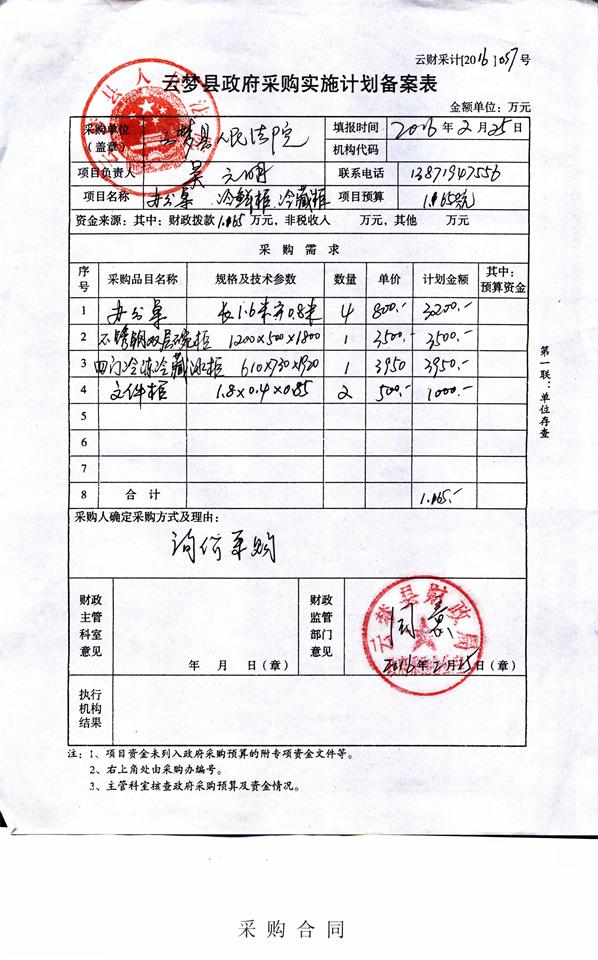 云财采计[2016]057号
云梦县政府采购实施计划备案表
金额单位：万元
采购单位（盖章） 云梦县人民法院 填报时间 2016年2月25日
机构代码
项目负责人 吴元明 联系电话 13871947556
项目名称 办公桌 冷鲜柜、冷藏柜 项目预算 1.165
资金来源：其中：财政拨款1.165万元，非税收入 万元，其他 万元
采购需求
序号 采购品目名称 规格及技术参数 数量 单价 计划金额 其中：预算资金
1 办公桌 长1.6米 0.8米 4 800.- 3200.-
2 不锈钢双层碗柜 1200×500×1800 1 3500.- 3500.-
3 四门冷冻冷藏冰柜 610×730×1920 1 3950 3950.-
4 文件柜 1.8×0.4×0.85 2 500.- 1000.-
5
6
7
8 合计 1.165.-
第一联：单位存查
采购人确定采购方式及理由：
询价采购
财政主管科室意见 年 月 日（章）
财政监管部门意见 2016年2月25日（章）
云梦县财政局
执行机构结果
注：1、项目资金未列入政府采购预算的附专项资金文件等。
2、右上角处由采购办编号。
3、主管科室核查政府采购预算及资金情况。
采购合同